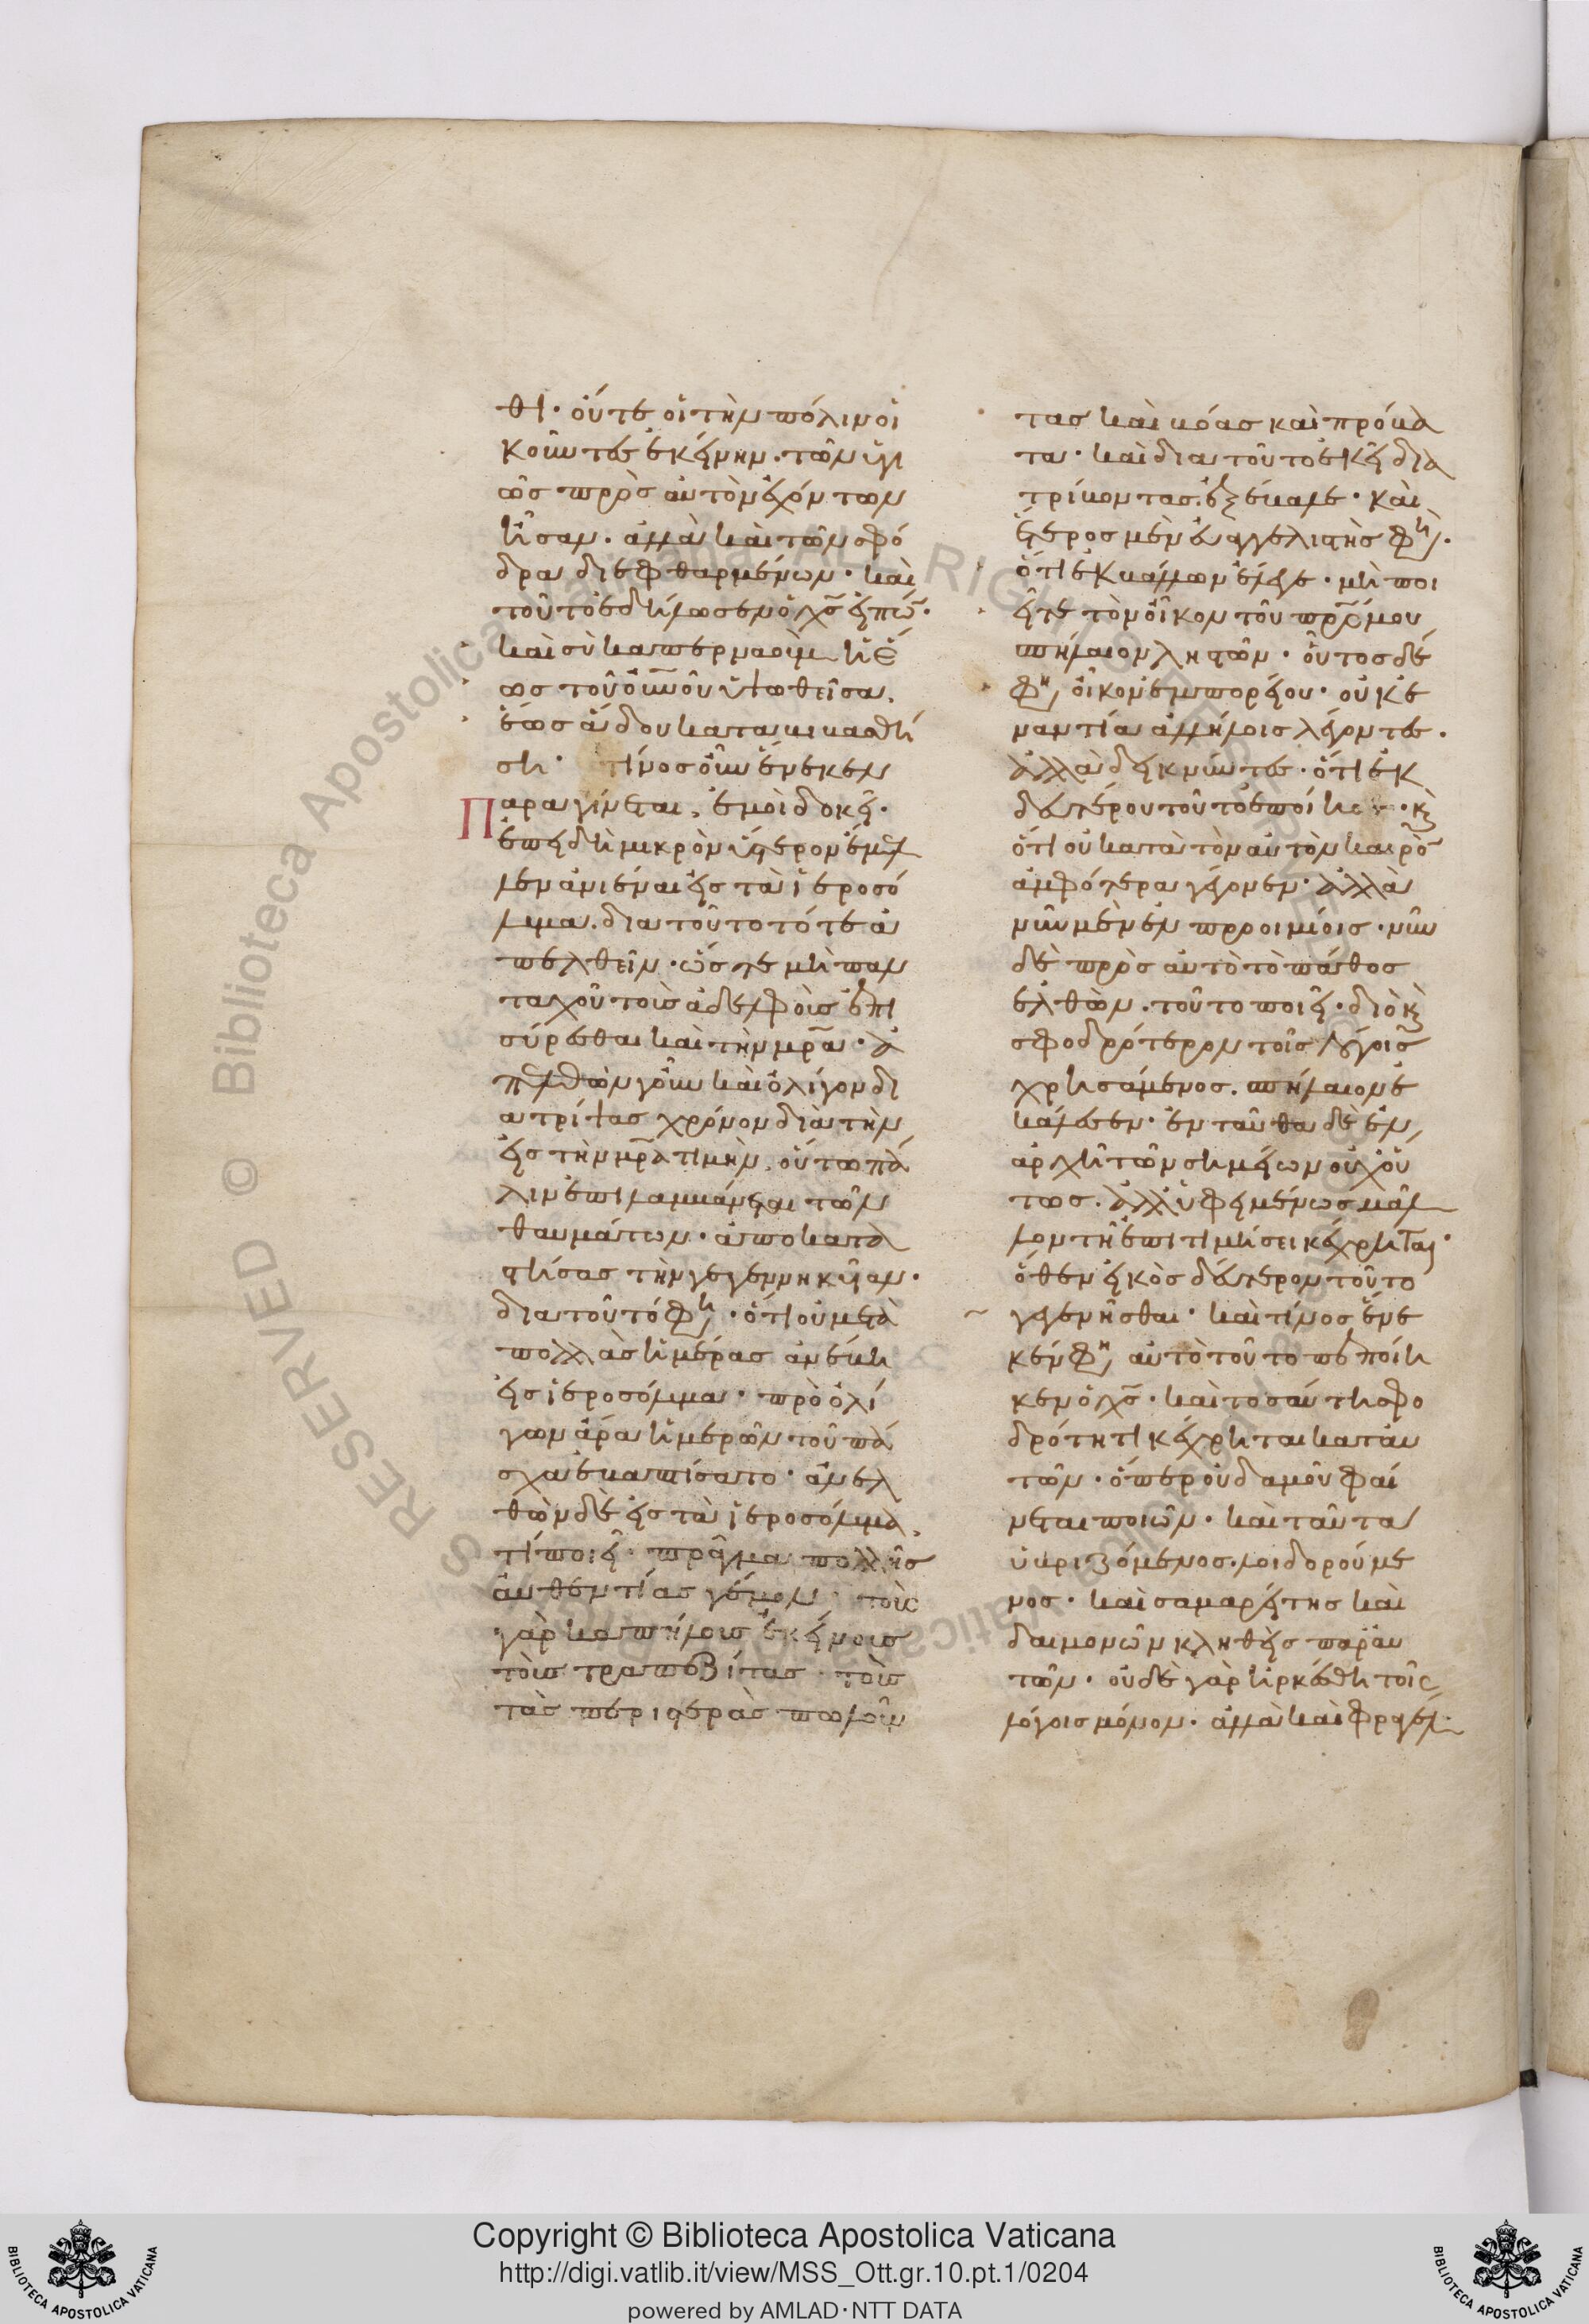 θι· οὔτε οἱ τὴν πόλιν οἰ
κοῦντες ἐκείνην· τῶν ὑγι
ῶς πρὸς αὐτὸν ἐχόντων
ἦσαν. ἀλλὰ καὶ τῶν σφό
δρα διεφθαρμένων· καὶ
τοῦτο ἐδήλωσεν ὁ χ̅ς̅ εἰπώ̅·
καὶ σὺ καπερναοὺμ ἡ ἕ
ως τοῦ οὐ̅ν̅οῦ ὑψωθεῖσα,
ἕως ᾅδου καταβιβασθή
ση· τίνος οὖν ἕνεκεν
παραγίνεται, ἐμοὶ δοκεῖ·
ἐπειδὴ μικρὸν ὕστερον ἔμελ
λεν ἀνιέναι εἰς τὰ ἱεροσό
λυμα. διατοῦτο τότε ἀ
πελθεῖν· ὥστε μὴ παν
ταχοῦ τοὺς ἀδελφοὺς ἐπι
σύρεσθαι καὶ τὴν μ̅ρ̅α̅· ἀ
πελθὼν γοῦν καὶ ὀλίγον δι
ατρίψας χρόνον διὰ τὴν
εἰς τὴν μ̅ρ̅α̅ τιμὴν, οὕτω πά
λιν ἐπιλαμβάνεται τῶν
θαυμάτων· ἀποκατα
στήσας τὴν γεγεννηκυῖαν·
διατοῦτό φη· ὅτι οὐ μετὰ
πολλὰς ἡμέρας ἀνέβη
εἰς ἱεροσόλυμα· πρὸ ὀλί
γων ἄρα ἡμερῶν τοῦ πά
σχα ἐβαπτίσατο· ἀνελ
θὼν δὲ εἰς τὰ ἱεροσόλυμα,
τί ποιεῖ· πρᾶγμα πολλῆς
αὐθεντίας γέμον· τοὺς
γὰρ καπήλους ἐκείνους
τοὺς τραπεζίτας· τοὺς
τὰς περιστερὰς πωλοῦν
τας καὶ βόας καὶ πρόβα
τα· καὶ διατοῦτο ἐκεῖ δια
τρίβοντας, ἐξέβαλε· καὶ
ἕτερος μὲν εὐαγγελιστής φη·
ὅτι ἐκβάλλων ἔλεγε· μὴ ποι
εῖτε τὸν οἶκον τοῦ π̅ρ̅ς̅ μου
σπήλαιον ληστῶν· οὗτος δέ
φη, οἶκον ἐμπορίου· οὐκ ἐ
ναντία ἀλλήλοις λέγοντες.
ἀλλὰ δεικνύντες· ὅτι ἐκ
δευτέρου τοῦτο ἐποίησε· κ
ὅτι οὐ κατὰ τὸν αὐτὸν καιρὸ̅
ἀμφότερα γέγονεν· ἀλλὰ
νῦν μὲν ἐν προοιμίοις· νῦν
δὲ πρὸς αὐτὸ τὸ πάθος
ἐλθὼν. τοῦτο ποιεῖ· διὸ κ
σφοδρότερον τοῖς λόγοις
χρησάμενος. σπήλαιον ἐ
κάλεσεν· ἐνταῦθα δὲ ἐν
ἀρχῆ τῶν σημείων οὐχ οὕ
τως. ἀλλ' ὑφειμένως μᾶλ
λον τῇ ἐπιτιμήσει κέχρηται·
ὅθεν εἰκὸς δεύτερον τοῦτο
γεγενῆσθαι· καὶ τίνος ἕνε
κέν φη, αὐτὸ τοῦτο πεποίη
κεν ὁ χ̅ς̅· καὶ τοσαύτη σφο
δρότητι κέχρηται κατ' αὐ
τῶν· ὅπερ οὐδαμοῦ φαί
νεται ποιῶν· καὶ ταῦτα
ὑβριζόμενος. λοιδορούμε
νος· καὶ σαμαρείτης καὶ
δαιμονῶν κληθεὶς παρ' αὐ
τῶν· οὐδὲ γὰρ ἠρκέσθη τοῖς
λόγοις μόνον. ἀλλὰ καὶ φραγέλ
RESERVED © Biblioteca Apostolica Vaticana. ALL RIGHTS
Copyright © Biblioteca Apostolica Vaticana
http://digi.vatlib.it/view/MSS_Ott.gr.10.pt.1/0204
powered by AMLAD·NTT DATA
BIBLIOTECA APOSTOLICA VATICANA
BIBLIOTECA APOSTOLICA VATICANA